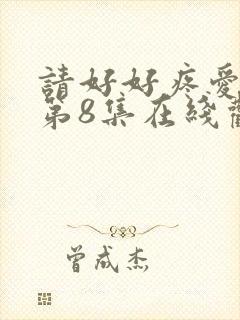 請好好疼愛
第8集在綫
曾成杰